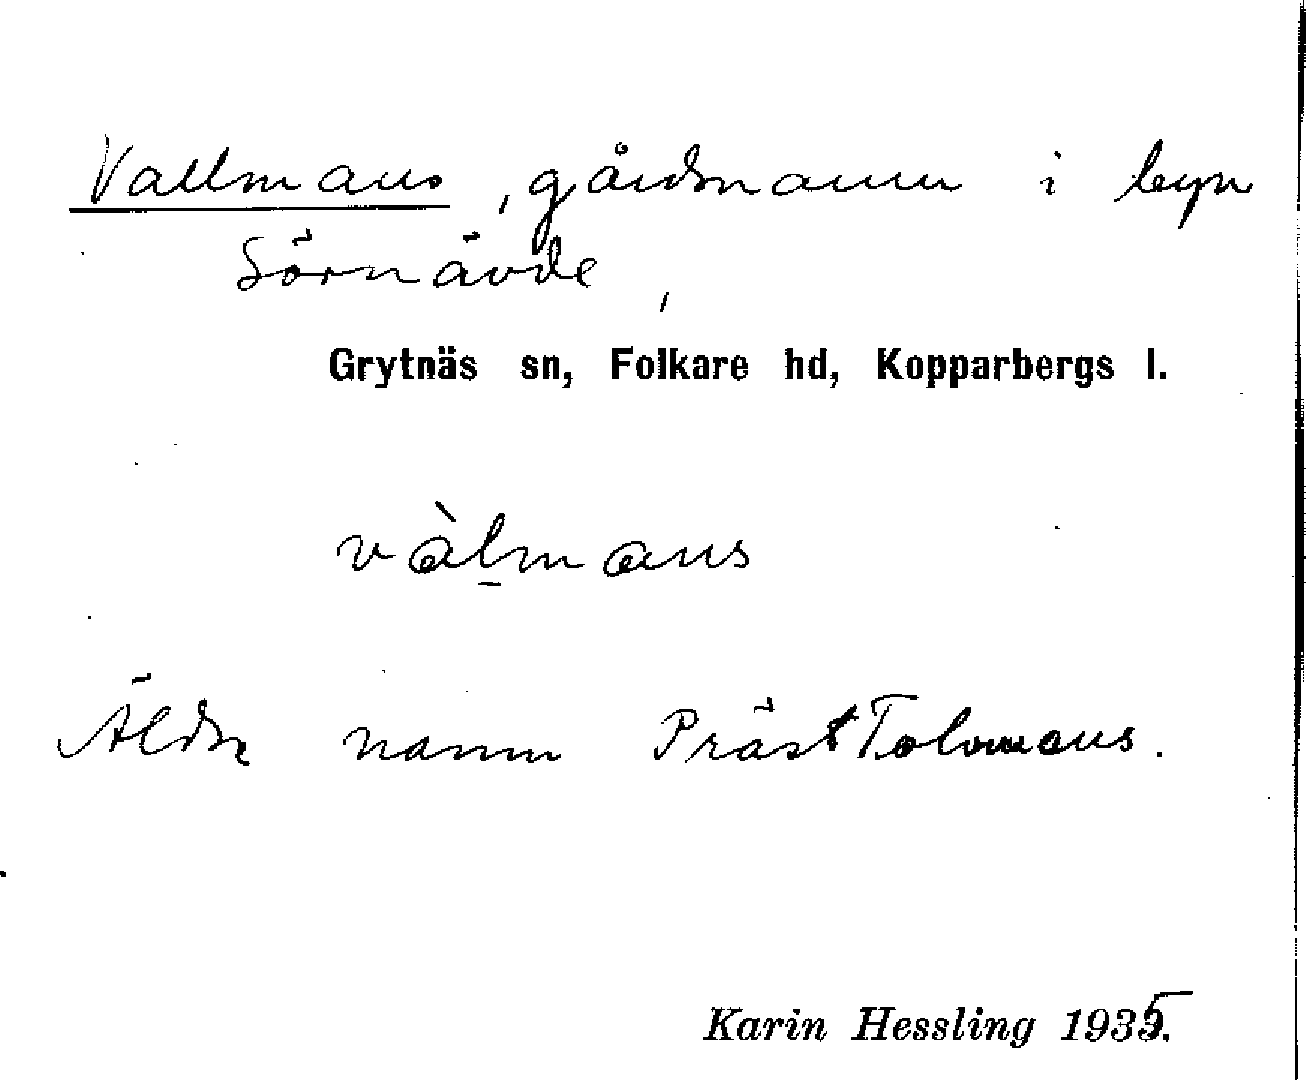 Vallmans, gårdsnamn i byn
Sörnävde,
Grytnäs sn, Folkare hd, Kopparbergs l.
vàlmans
Äldre namn PrästTolomans.
Karin Hessling 1935.